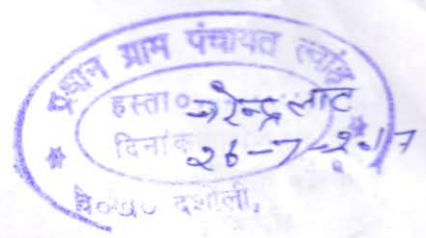 प्रधान ग्राम पंचायत ल्वांह
हस्ता० नरेन्द्र लाल
दिनांक 26-7-2017
वि०ख० दशोली,